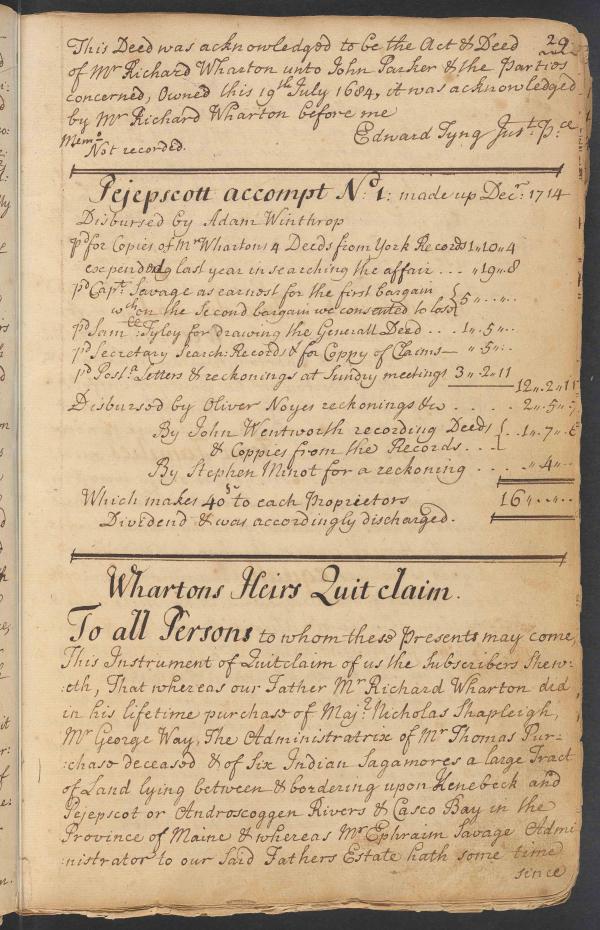 29
This Deed was acknowledged to be the Act & Deed
of Mr Richard Wharton unto John Parker & the Parties
concerned, Owned this 19th July 1684, it was acknowledged
by Mr Richard Wharton before me
Edward Tyng Just: Pce
Memo
Not recorded.
Pejepscott accompt No. 1: made up Decr: 1714
Disbursed by Adam Winthrop
pd for Copies of Mr Whartons 4 Deeds from York Records 1"10"4
expended last year in searching the affair ... "19"8
pd Capt: Savage as earnest for the first bargain
wch on the Second bargain we consented to lose } 5"..".
pd Samll: Tyley for drawing the Generall Deed .. 1"5"..
pd Secretary Search: Records & for Coppy of Claims— "5"..
pd Posta: Letters & reckonings at Sundry meetings 3"2"11
12"2"11
Disbursed by Oliver Noyes reckonings &c .... 2"5"
By John Wentworth recording Deeds
& Coppies from the Records ... } ..1"7"6
By Stephen Minot for a reckoning ... "4"..
Which makes 40s to each Proprietors 16"..".
Dividend & was accordingly discharged.
Whartons Heirs Quit claim.
To all Persons to whom these Presents may come,
This Instrument of Quitclaim of us the Subscribers Shew:
:eth, That whereas our Father Mr Richard Wharton did
in his lifetime purchase of Majr Nicholas Shapleigh,
Mr George Way, The Administratrix of Mr Thomas Pur=
:chase deceased & of Six Indian Sagamores a large Tract
of Land lying between & bordering upon Kenebeck and
Pejepscot or Androscoggen Rivers & Casco Bay in the
Province of Maine & whereas Mr Ephraim Savage Admi
:nistrator to our Said Fathers Estate hath some time
since